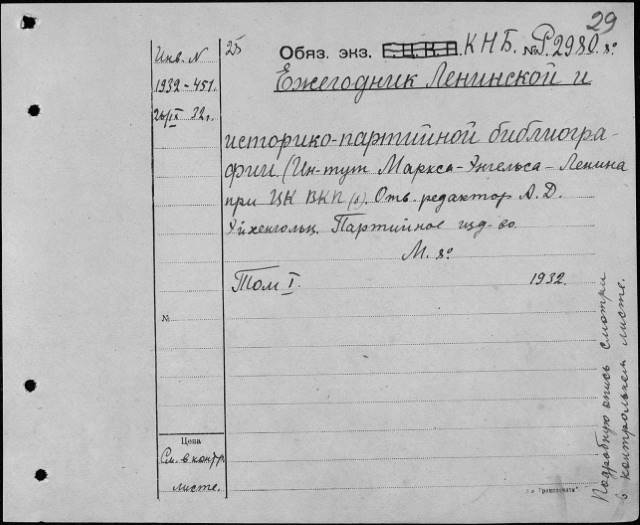 29
Инв. N
1932-451.
26/IX 32 г.
25
Обяз. экз. Г.Ц.К.П. К Н Б. № Р.2980. 8°
Ежегодник Ленинской и
историко-партийной библиогра-
фии (Ин-тут Маркса-Энгельса-Ленина
при ЦК ВКП(б). Отв. редактор А. Д.
Эйхенгольц. Партийное изд-во.
М. 8°
Том I. 1932.
№
Цена
См. в контр.
листе.
Подробную опись смотри
в контрольном листе.